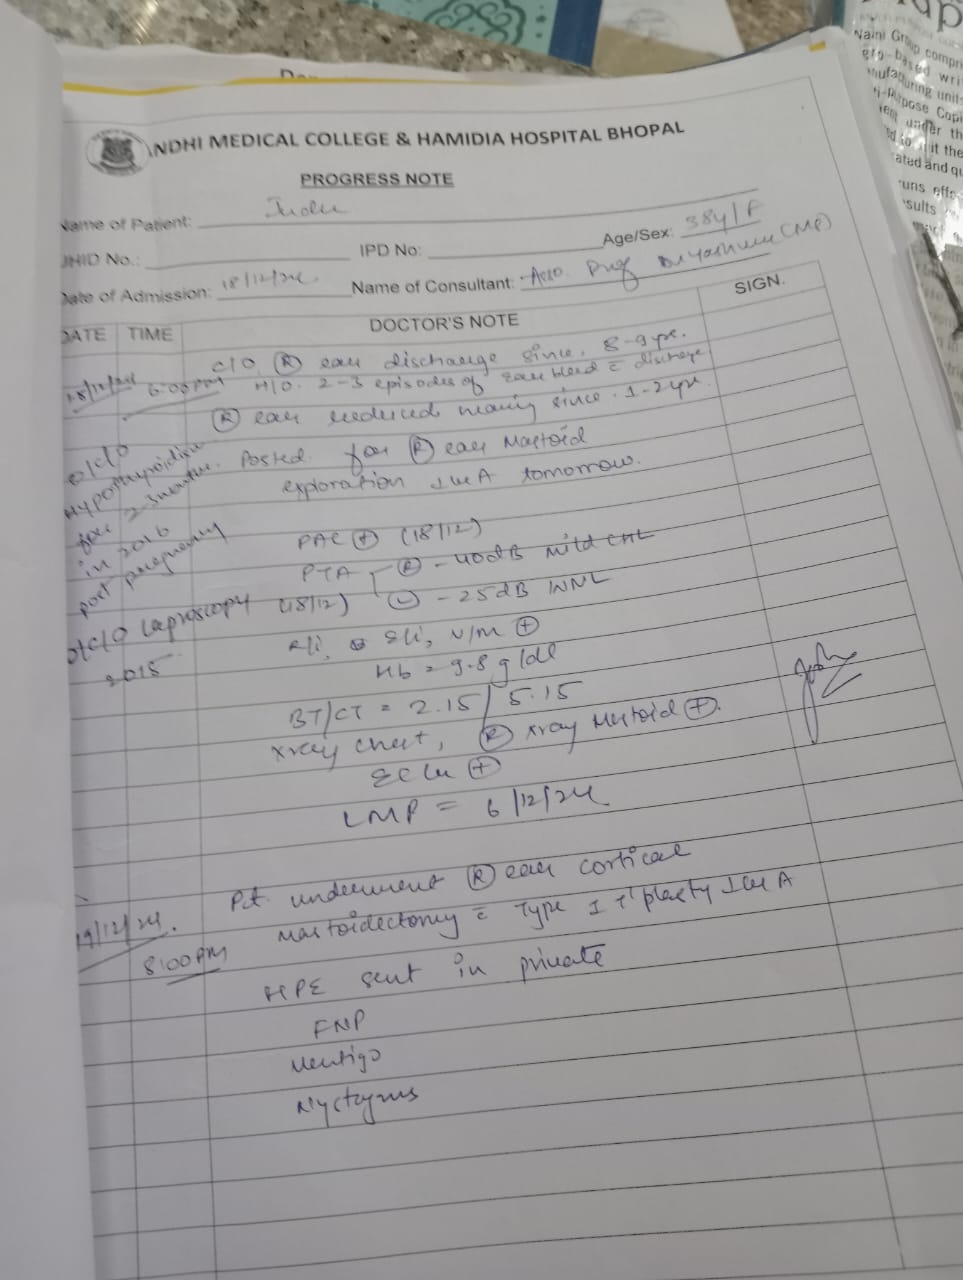 NDHI MEDICAL COLLEGE & HAMIDIA HOSPITAL BHOPAL
PROGRESS NOTE
Name of Patient: Indu
UHID No.:
IPD No:
Age/Sex: 38y/F
Date of Admission: 18/12/24
Name of Consultant: Asso. Prof (MP)
DATE TIME DOCTOR'S NOTE SIGN.
18/12/24 6:00PM c/o (R) ear discharge since 8-9 yr.
H/O. 2-3 episodes of ear bleed c̄ discharge
(R) ear reduced hearing since 1-2 yr.
Posted for (R) ear Mastoid
exploration ↓ LA tomorrow.
o/c/o
Hypothyroidism
for 2-3 months
in 2016
post pregnancy
o/c/o Laproscopy
2015
PAC (+) (18/12)
PTA (R) - 40dB mild CHL
(18/12) (L) - 25dB WNL
N/M (+)
Hb = 9.8 g/dl
BT/CT = 2.15/5.15
Xray chest, (R) Xray Mastoid (+).
(+)
LMP = 6/12/24
19/12/24.
8:00PM
Pt. underwent (R) ear cortical
mastoidectomy c̄ Type I T'plasty ↓ LA
HPE sent in private
FNP
Vertigo
Nystagmus
Naini Group compri
ero-based wri
anufacturing unit
ti-Purpose Copi
under th
it the
ated and qu
runs effo
sults